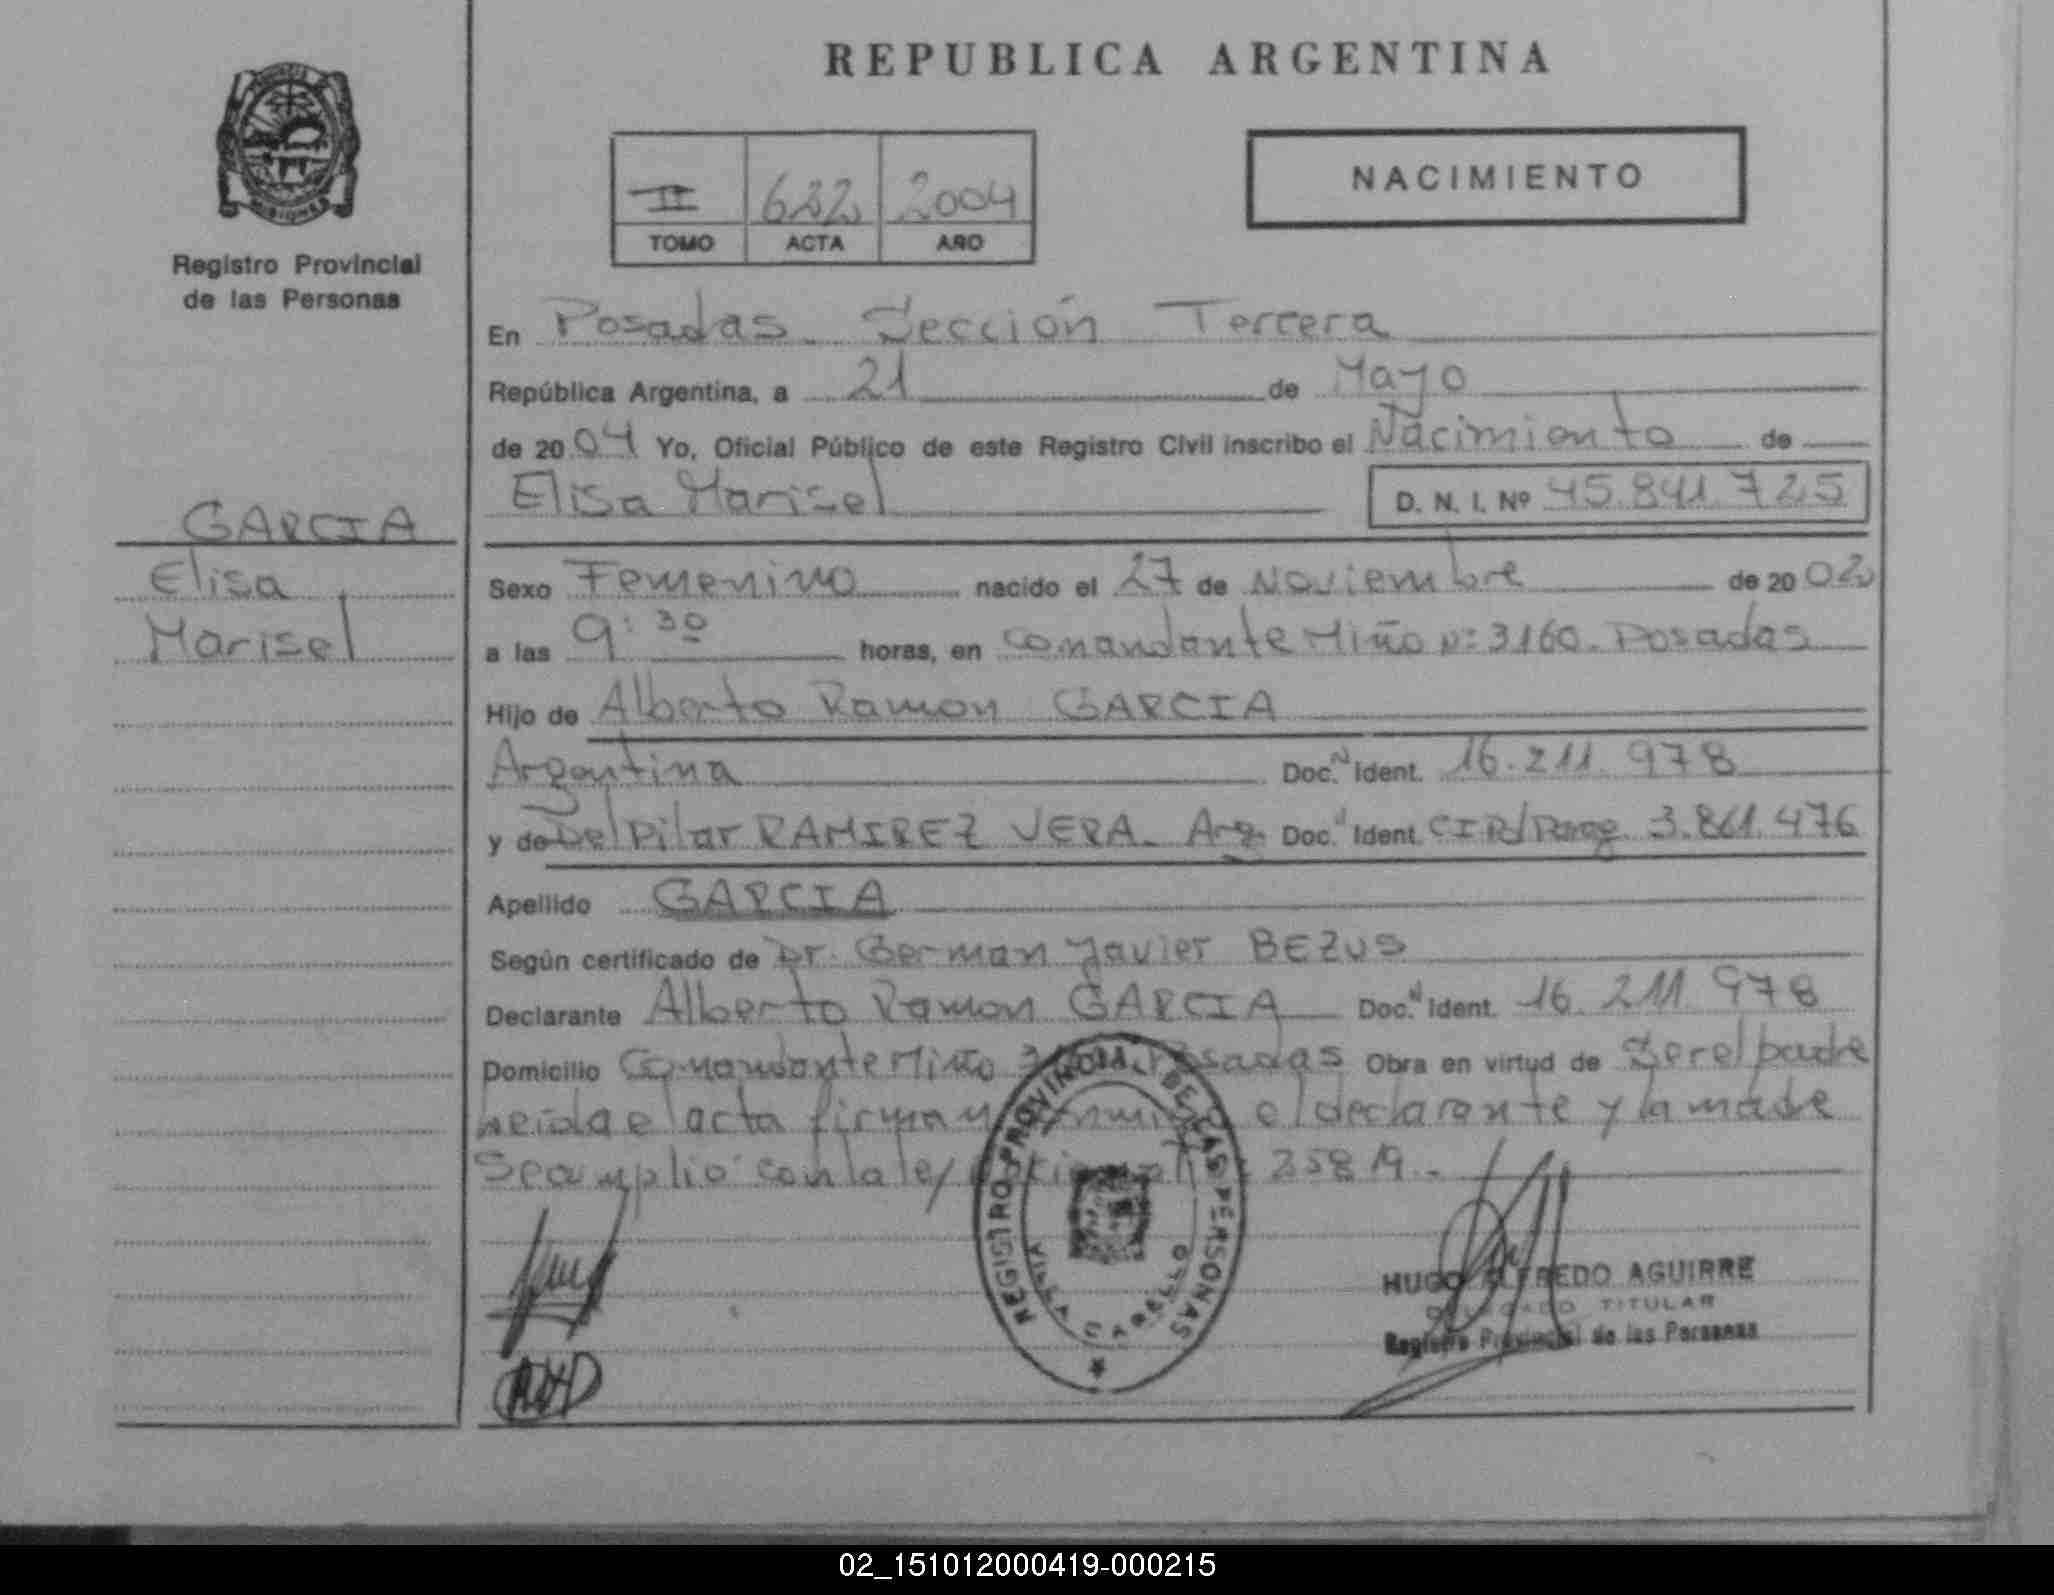 REPUBLICA ARGENTINA
MISIONES
Registro Provincial
de las Personas
II 622 2004
TOMO ACTA AÑO
NACIMIENTO
En Posadas Sección Tercera
República Argentina, a 21 de Mayo
de 2004 Yo, Oficial Público de este Registro Civil inscribo el Nacimiento de
Elisa Marisel D. N. I. Nº 45.841.725
GARCIA
Elisa
Marisel
Sexo Femenino nacido el 27 de Noviembre de 2002
a las 9:30 horas, en Comandante Miño Nº 3160. Posadas
Hijo de Alberto Ramon GARCIA
Argentina Doc. N Ident. 16.211.978
y de Del Pilar RAMIREZ VERA. Arg. Doc. N Ident. CI Parag 3.861.476
Apellido GARCIA
Según certificado de Dr. German Javier BEZUS
Declarante Alberto Ramon GARCIA Doc. N Ident. 16.211.978
Domicilio Comandante Miño Posadas Obra en virtud de Ser el padre
Leida el acta firman el declarante y la madre
Se amplio con la ley 25819.-
REGISTRO PROVINCIAL DE LAS PERSONAS
VILLA CABELLO
HUGO ALFREDO AGUIRRE
DELEGADO TITULAR
Registro Provincial de las Personas
02_151012000419-000215